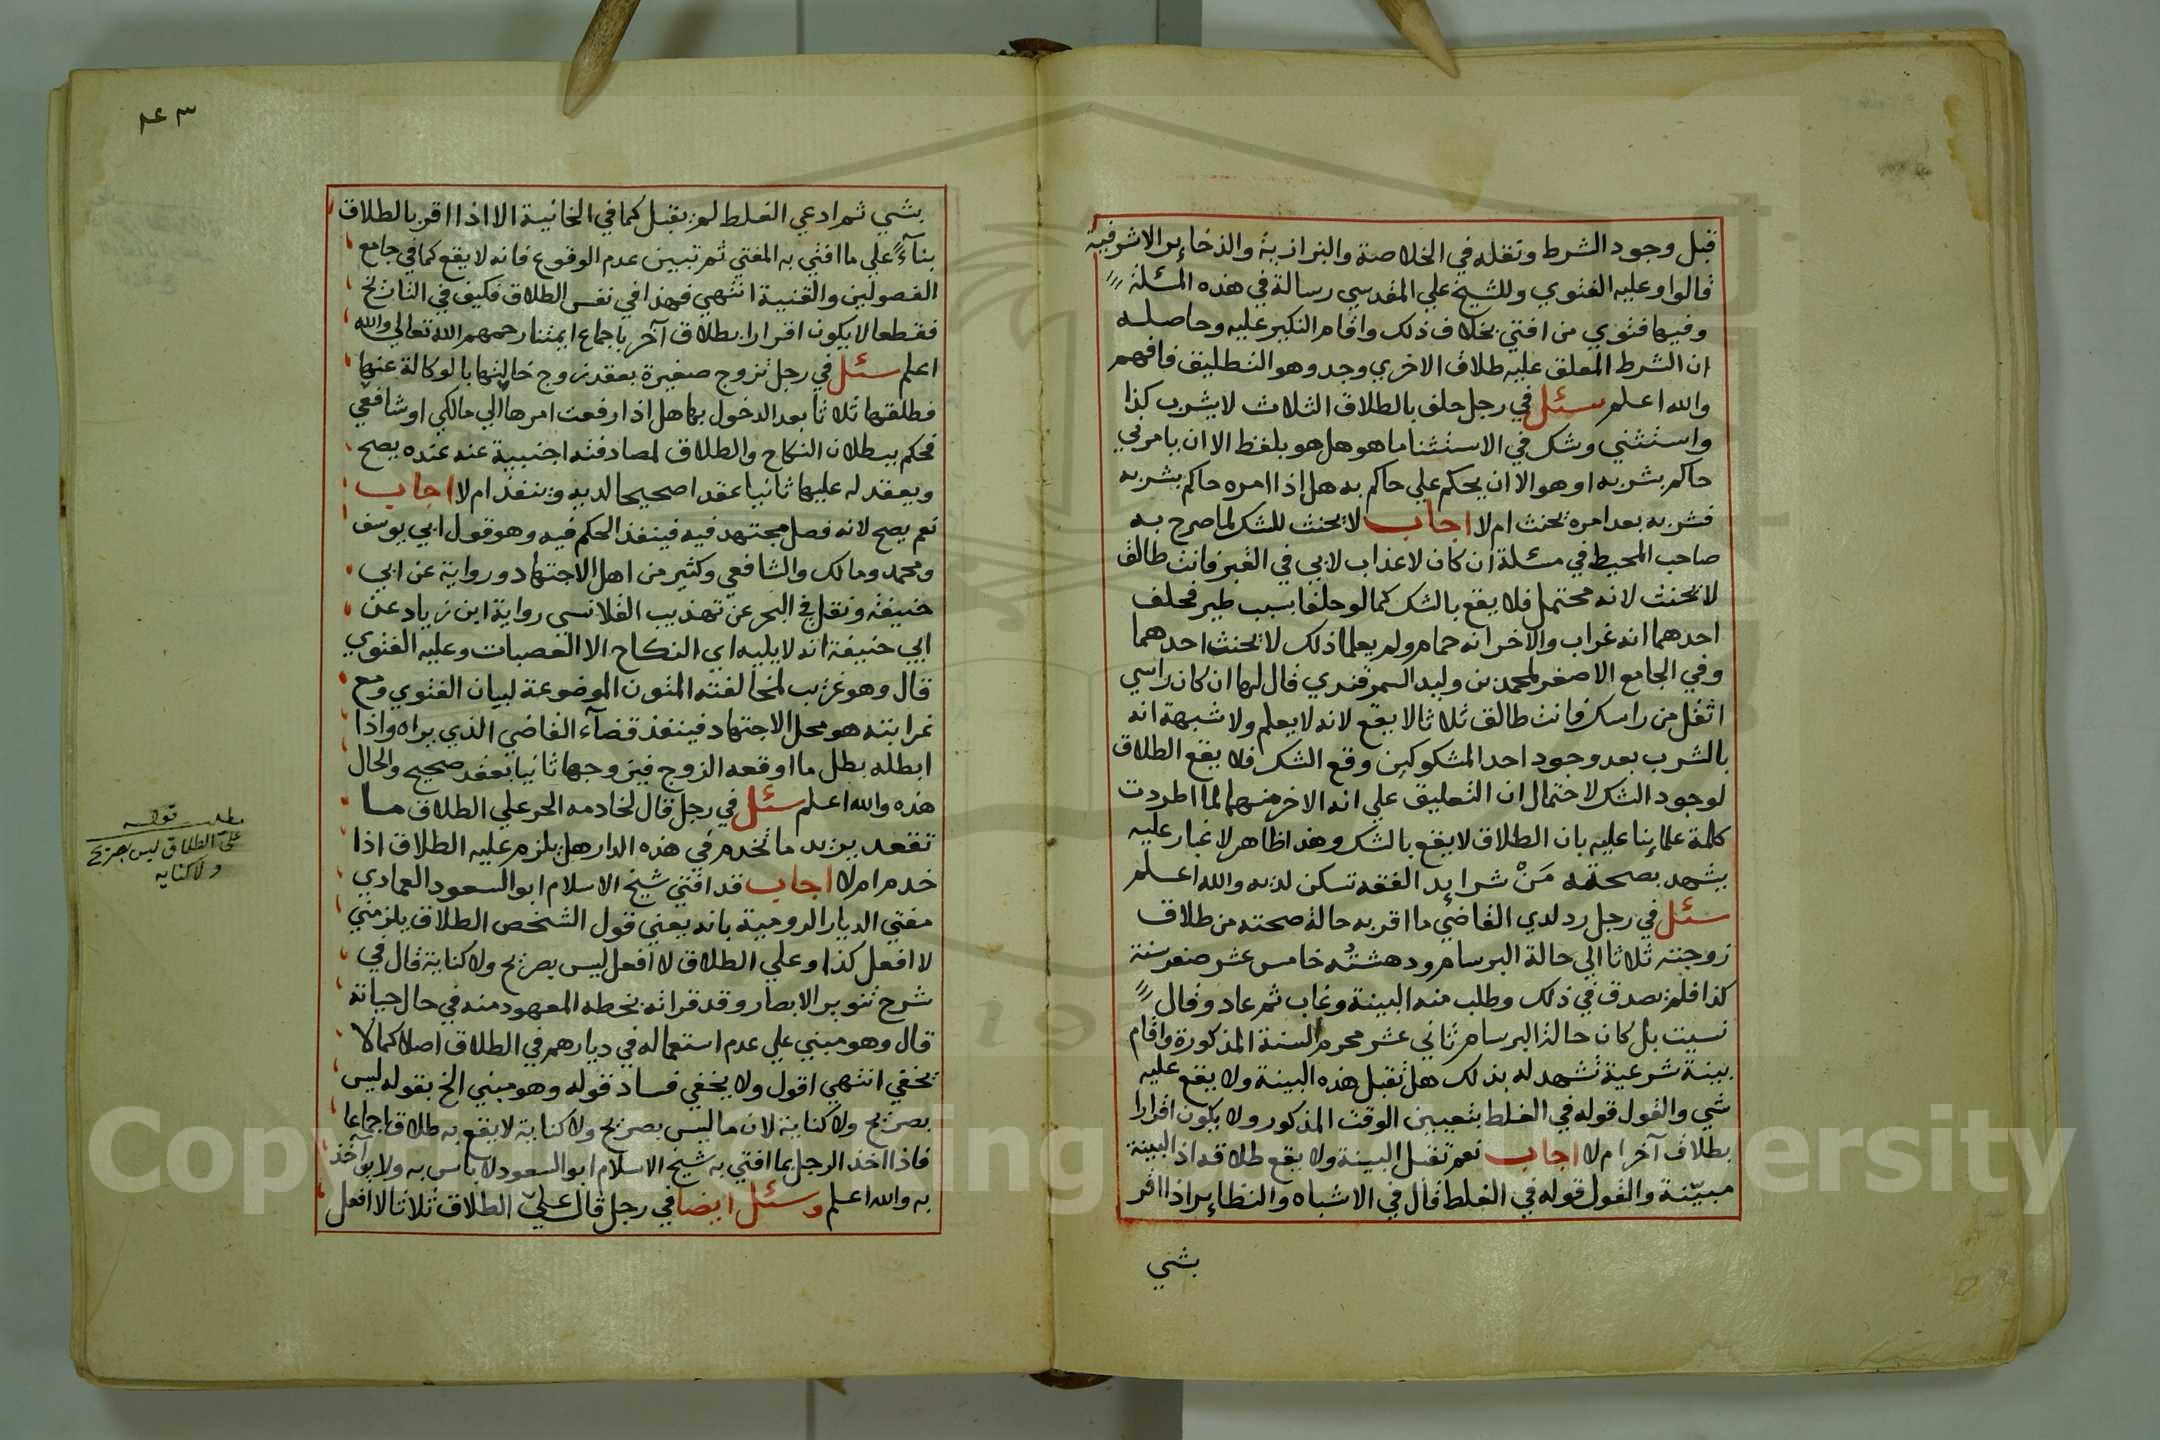 قبل وجود الشرط ونقله في الخلاصة والبزازية والذخاير الاشرفية
قالوا وعليه الفتوي وللشيخ علي المقدسي رسالة في هذه المسئلة
وفيها فتوي من افتي بخلاف ذلك واقام النكير عليه وحاصله
ان الشرط المعلق عليه طلاق الاخري وجد وهو التطليق فافهم
والله اعلم سئل في رجل حلف بالطلاق الثلاث لا يشرب كذا
واستثني وشك في الاستثنا ما هو هل هو بلفظ الا ان يامرني
حاكم بشربه او هو الا ان يحكم علي حاكم به هل اذا امره حاكم بشربه
فشربه بعد امره يحنث ام لا اجاب لا يحنث للشك لما صرح به
صاحب المحيط في مسئلة ان كان لا عذاب لابي في القبر فانت طالق
لا تحنث لانه محتمل فلا يقع بالشك كما لو حلفا بسبب طير فحلف
احدهما انه غراب والاخر انه حمام ولم يعلما ذلك لا يحنث احدهما
وفي الجامع الاصغر لمحمد بن وليد السمرقندي قال لها ان كان راسي
اثقل من راسك فانت طالق ثلاثا لا يقع لانه لا يعلم ولا شبهة انه
بالشرب بعد وجود احد المشكوكين وقع الشك فلا يقع الطلاق
لوجود الشك لاحتمال ان التعليق علي انه الاخر منهما لما اطردت
كلمة علماينا عليه بان الطلاق لا يقع بالشك وهذا ظاهر لا غبار عليه
يشهد بصحته مَنْ شرايد الفقه تسكن لديه والله اعلم
سئل في رجل رد لدي القاضي ما اقر به حالة صحته من طلاق
زوجته ثلاثا الي حالة البرسام ودهشته خامس عشر صفر سنة
كذا فلم يصدق في ذلك وطلب منه البينة وغاب ثم عاد وقال
نسيت بل كان حالة البرسام ثاني عشر محرم السنة المذكورة واقام
بينة شرعية تشهد له بذلك هل تقبل هذه البينة ولا يقع عليه
شي والقول قوله في الغلط بتعيين الوقت المذكور ولا يكون اقرارا
بطلاق آخر ام لا اجاب نعم تقبل البينة ولا يقع طلاقه اذ البينة
مبيّنة والقول قوله في الغلط قال في الاشباه والنظاير اذا اقر
بشي
٢٤٣
بشي ثم ادعي الغلط لم يقبل كما في الخانية الا اذا اقر بالطلاق
بنآءً علي ما افتي به المفتي ثم تبين عدم الوقوع فانه لا يقع كما في جامع
الفصولين والقنية انتهي فهذا في نفس الطلاق فكيف في التاريخ
فقطعا لا يكون اقرارا بطلاق آخر باجماع ايمتنا رحمهم الله تعالي والله
اعلم سئل في رجل تزوج صغيرة بعقد زوج خالتها بالوكالة عنها
فطلقها ثلاثا بعد الدخول بها هل اذا رفعت امرها الي مالكي او شافعي
فحكم ببطلان النكاح والطلاق لمصادفته اجنبية عنه عنده يصح
ويعقد له عليها ثانيا عقدا صحيحا لديه وينفذ ام لا اجاب
نعم يصح لانه فصل مجتهد فيه فينفذ الحكم فيه وهو قول ابي يوسف
ومحمد ومالك والشافعي وكثير من اهل الاجتهاد ورواية عن ابي
حنيفة ونقل في البحر عن تهذيب القلانسي رواية ابن زياد عن
ابي حنيفة انه لا يليه اي النكاح الا العصبات وعليه الفتوي
قال وهو غريب لمخالفته المتون الموضوعة لبيان الفتوي ومع
غرابته هو محل الاجتهاد فينفذ قضآء القاضي الذي يراه واذا
ابطله بطل ما اوقعه الزوج فيزوجها ثانيا بعقد صحيح والحال
هذه والله اعلم سئل في رجل قال لخادمه الحر علي الطلاق ما
تقعد يريد ما تخدم في هذه الدار هل يلزم عليه الطلاق اذا
خدم ام لا اجاب قد افتي شيخ الاسلام ابو السعود العمادي
مفتي الديار الرومية بانه يعني قول الشخص الطلاق يلزمني
لا افعل كذا وعلي الطلاق لا افعل ليس بصريح ولا كناية قال في
شرح تنوير الابصار وقد قراته بخطه المعهود منه في حال حياته
قال وهو مبني علي عدم استعماله في ديارهم في الطلاق اصلا كما لا
يخفي انتهي اقول ولا يخفي فساد قوله وهو مبني الخ بقوله ليس
بصريح ولا كناية لان ما ليس بصريح ولا كناية لا يقع به طلاق اجماعا
فاذا اخذ الرجل بما افتي به شيخ الاسلام ابو السعود لا باس به ولا يواخذ
به والله اعلم وسئل ايضا في رجل قال عليّ الطلاق ثلاثا لا افعل
مطلب قوله
علي الطلاق ليس بصريح
ولا كنايه
Copyright © King Saud University
1957